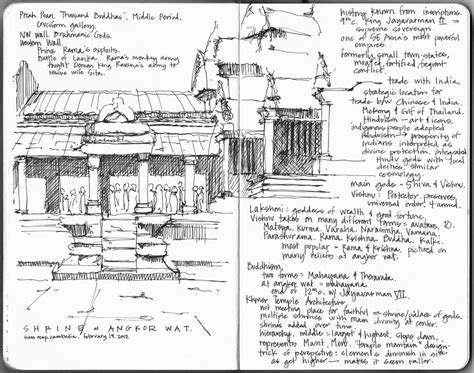 Preah Poan. "Thousand Buddhas", Middle Period.
cruciform gallery.
NW wall Brahmanic Gods.
Western Wall.
Prince Rama's exploits.
Battle of Lanka. Rama's monkey army
fought Demon King Ravana's army to
rescue wife Sita.
SHRINE @ ANGKOR WAT.
siem reap, cambodia. february 19. 2012
history known from inscriptions
9th c. King Jayavarman II =
supreme sovereign
one of SE Asia's most powerful
empires.
formerly small town-states,
moated, fortified, frequent
conflict.
trade with India
strategic location for
trade b/w Chinese & India
Mekong & Gulf of Thailand.
Hinduism - art & icons,
indigenous people adopted
Hinduism → prosperity of
Indians interpreted as
divine protection. integrated
Hindu gods with local
deities. similar
cosmology.
main gods - Shiva & Vishnu.
Vishnu: Protector, preserves
universal order, 4-armed.
Lakshmi: goddess of wealth & good fortune,
Vishnu takes on many different forms = avatars, 10.
Matsya, Kurma, Varaha, Narasimha, Vamana,
Parashurama, Rama, Krishna, Buddha, Kalki.
most popular - Rama & Krishna, pictured on
many reliefs at angkor wat.
Buddhism,
two forms = Mahayana & Theravada.
at angkor wat = mahayana
end of 12th c. w/ Jayavarman VII.
Khmer Temple Architecture
not meeting place for faithful → shrine/palace of gods.
multiple shrines with main divinity at center.
shrines added over time.
hierarchy, middle = largest & highest, steps down.
represents Mount Meru. "temple mountain" design
trick of perspective: elements diminish in size
as get higher — makes it seem taller.